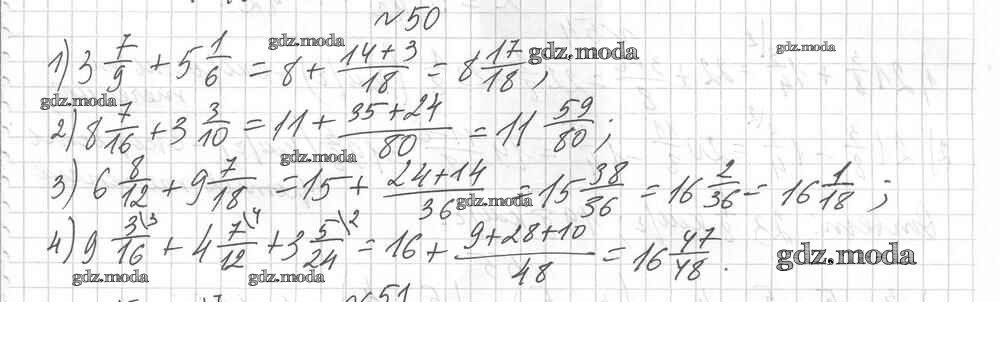 №50
1) 3 7/9 + 5 1/6 = 8 + (14+3)/18 = 8 17/18 ;
2) 8 7/16 + 3 3/10 = 11 + (35+24)/80 = 11 59/80 ;
3) 6 8/12 + 9 7/18 = 15 + (24+14)/36 = 15 38/36 = 16 2/36 = 16 1/18 ;
4) 9 3\3/16 + 4 7\4/12 + 3 5\2/24 = 16 + (9+28+10)/48 = 16 47/48 .
№51
gdz.moda
gdz.moda
gdz.moda
gdz.moda
gdz.moda
gdz.moda
gdz.moda
gdz.moda
gdz.moda